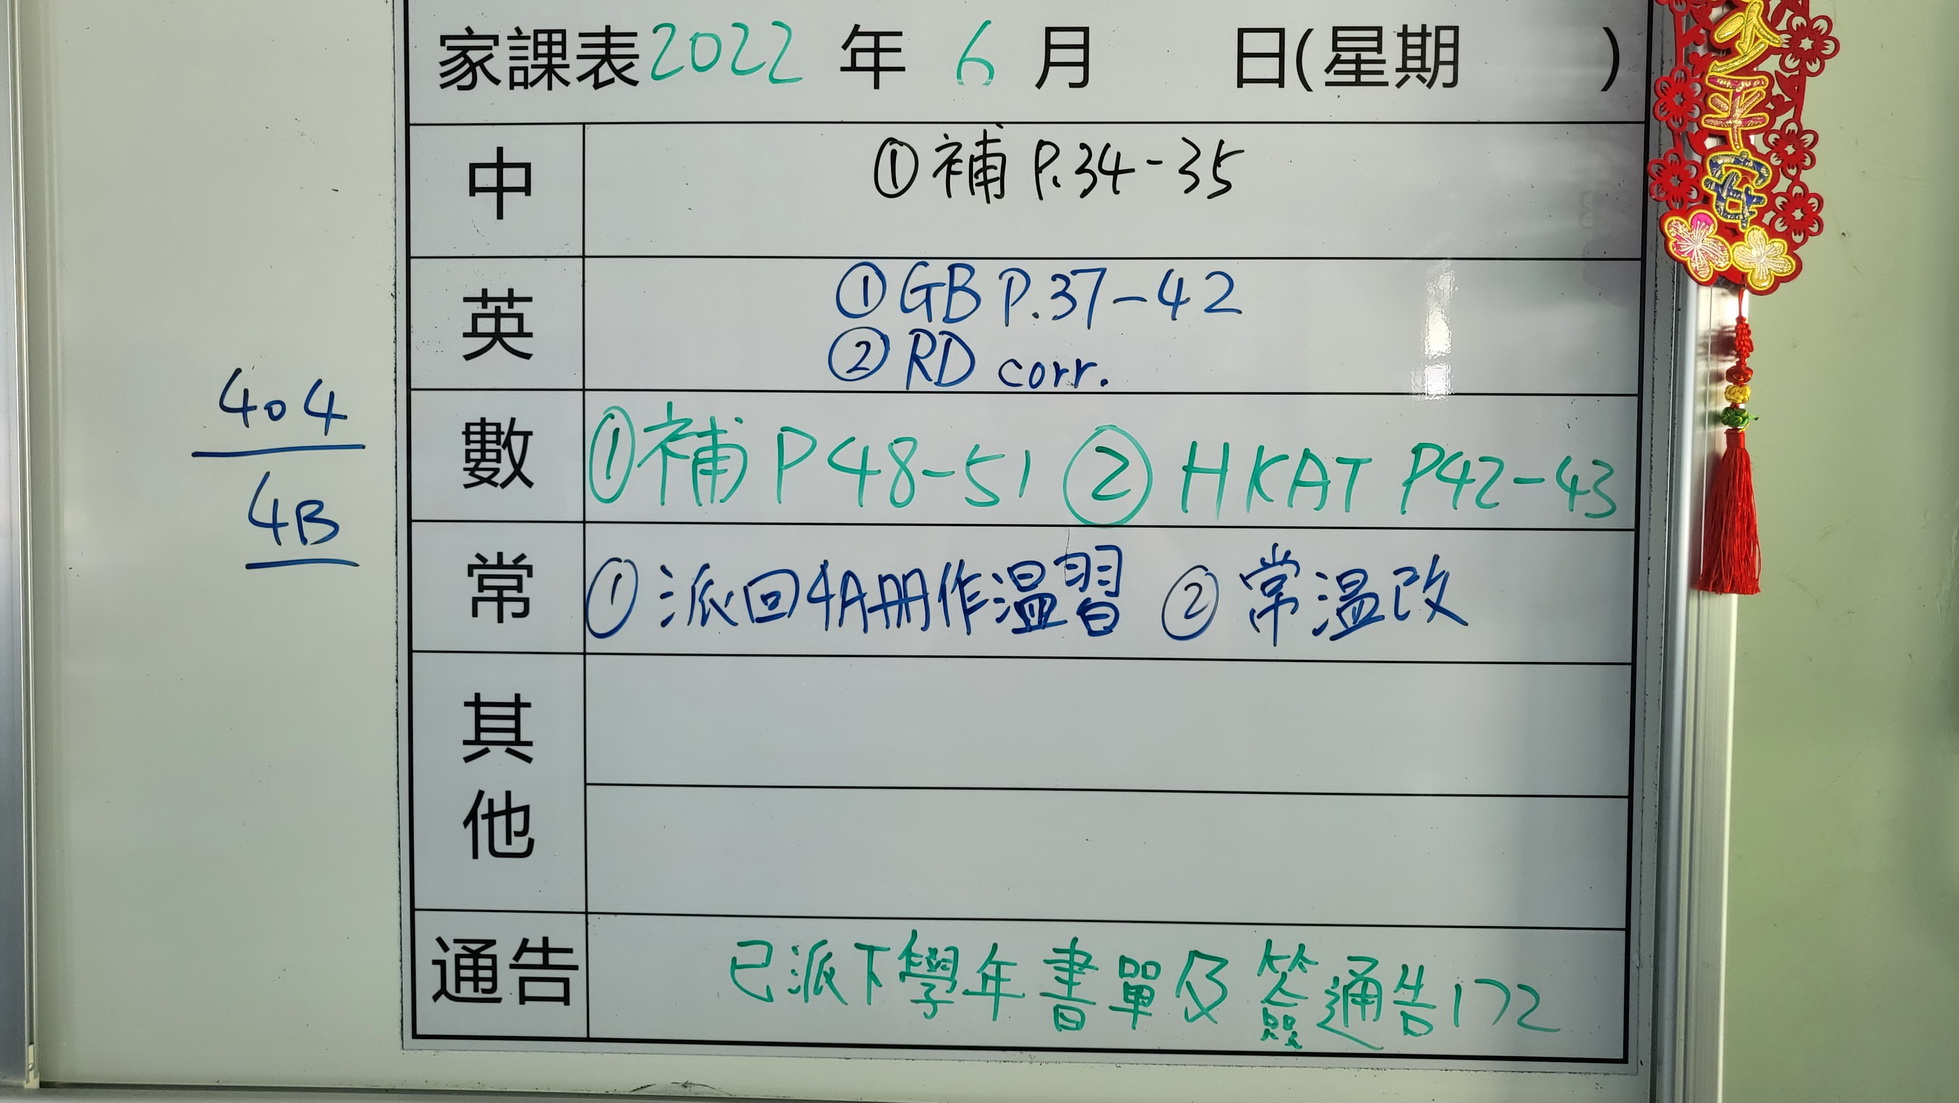 家課表2022年 6月 日(星期 )
中
①補 P.34-35
英
①GB P.37-42
②RD corr.
數
①補 P48-51 ②HKAT P42-43
常
①派回4A冊作溫習 ②常溫改
其他
通告
已派下學年書單及簽通告172
404
4B
平安